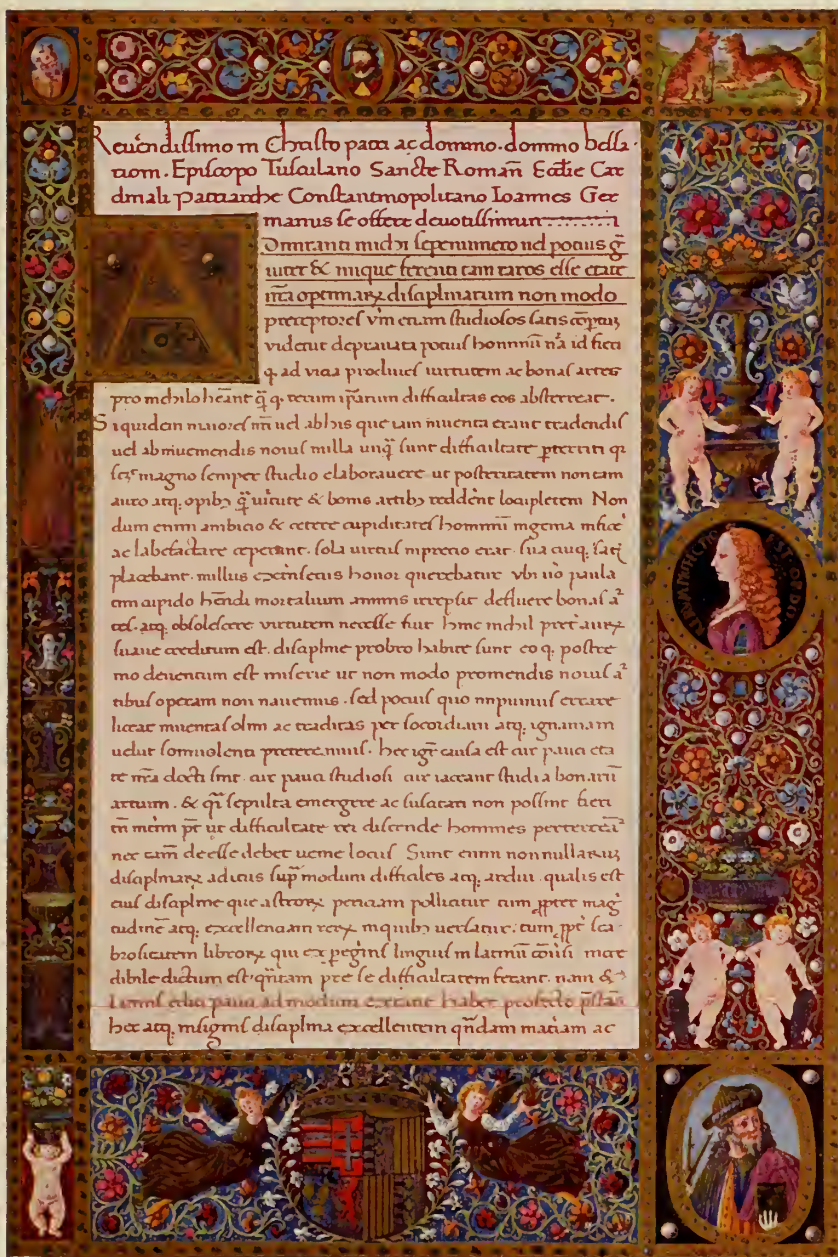 Reuerēdissimo in Christo patri ac domino. domino bessa-
rioni. Episcopo Tusculano Sancte Romañ Ecclīe Car
dinali Patriarche Constantinopolitano Ioannes Ger
manus se offert deuotissimum
A
Dmiranti michi sepenumero uel potius gͣ
uiter & inique ferenti tam raros esse etate
nr̄a optimarꝝ disciplinarum non modo
preceptores vm̄ etiam studiosos satis cōpertuȝ
videtur deprauata potius hominū nr̄a id fieri
q. ad vicia procliues uirtutem ac bonas artes
pro nichilo hēant q̄ꝫ q. rerum ip̄arum difficultas eos absterreat.
Siquidem maiores nr̄i uel ab his que iam inuenta erant tradendis
uel ab inueniendis nouis nulla unq̄ꝫ sunt difficultate p̄territi
magno semper studio elaborauere ut posteritatem non tam
auro atq. opibꝫ q̄ꝫ uirtute & bonis artibꝫ redderēt locupletem Non
dum enim ambicio & cetere cupiditates hominū ingenia inficē
ac labefactare ceperant. sola uirtus in precio erat. sua cuiq.
placebant. nullus extrinsecus honor querebatur vbi uō paula
tim cupido hēndi mortalium animis irrepsit defluere bonas aͬ
tes. atq. obsolescere virtutem necesse fuit hinc nichil pret̄ aurꝝ
suaue creditum est. discipline probro habite sunt eo q. postre
mo deuentum est miserie ut non modo promendis nouis aͬ
tibus operam non nauemus. sed potius quo inpunius errare
liceat inuentas olim ac traditas per socordiam atq. ignauiam
uelut somnolenti pretereamus. hec igr̄ causa est cur pauci eta
te nr̄a docti sint. cur pauci studiosi cur iaceant studia bonarū
artium. & q̄si sepulta emergere ac suscitari non possint fieri
tn̄ ut difficultate rei discende homines perterreā
nec tam̄ deesse debet uenie locus Sunt enim non nullaruȝ
disciplinarꝝ aditus sup̄ modum difficiles atq. ardui. qualis est
eius discipline que astrorꝝ periciam pollicitur tum ꝓpter mag
tudinē atq. excellenciam rerꝝ in quibꝫ uersatur. tum ꝓpt̄ sca
brositatem librorꝝ qui ex peregrīs linguis in latinū cōuersi incre
dibile dictum est. quātam pre se difficultatem ferant. nam &
Latinis editi pauci ad modum extant habet profecto p̄stās
hec atq. insignis disciplina excellentem quādam mat̄iam ac